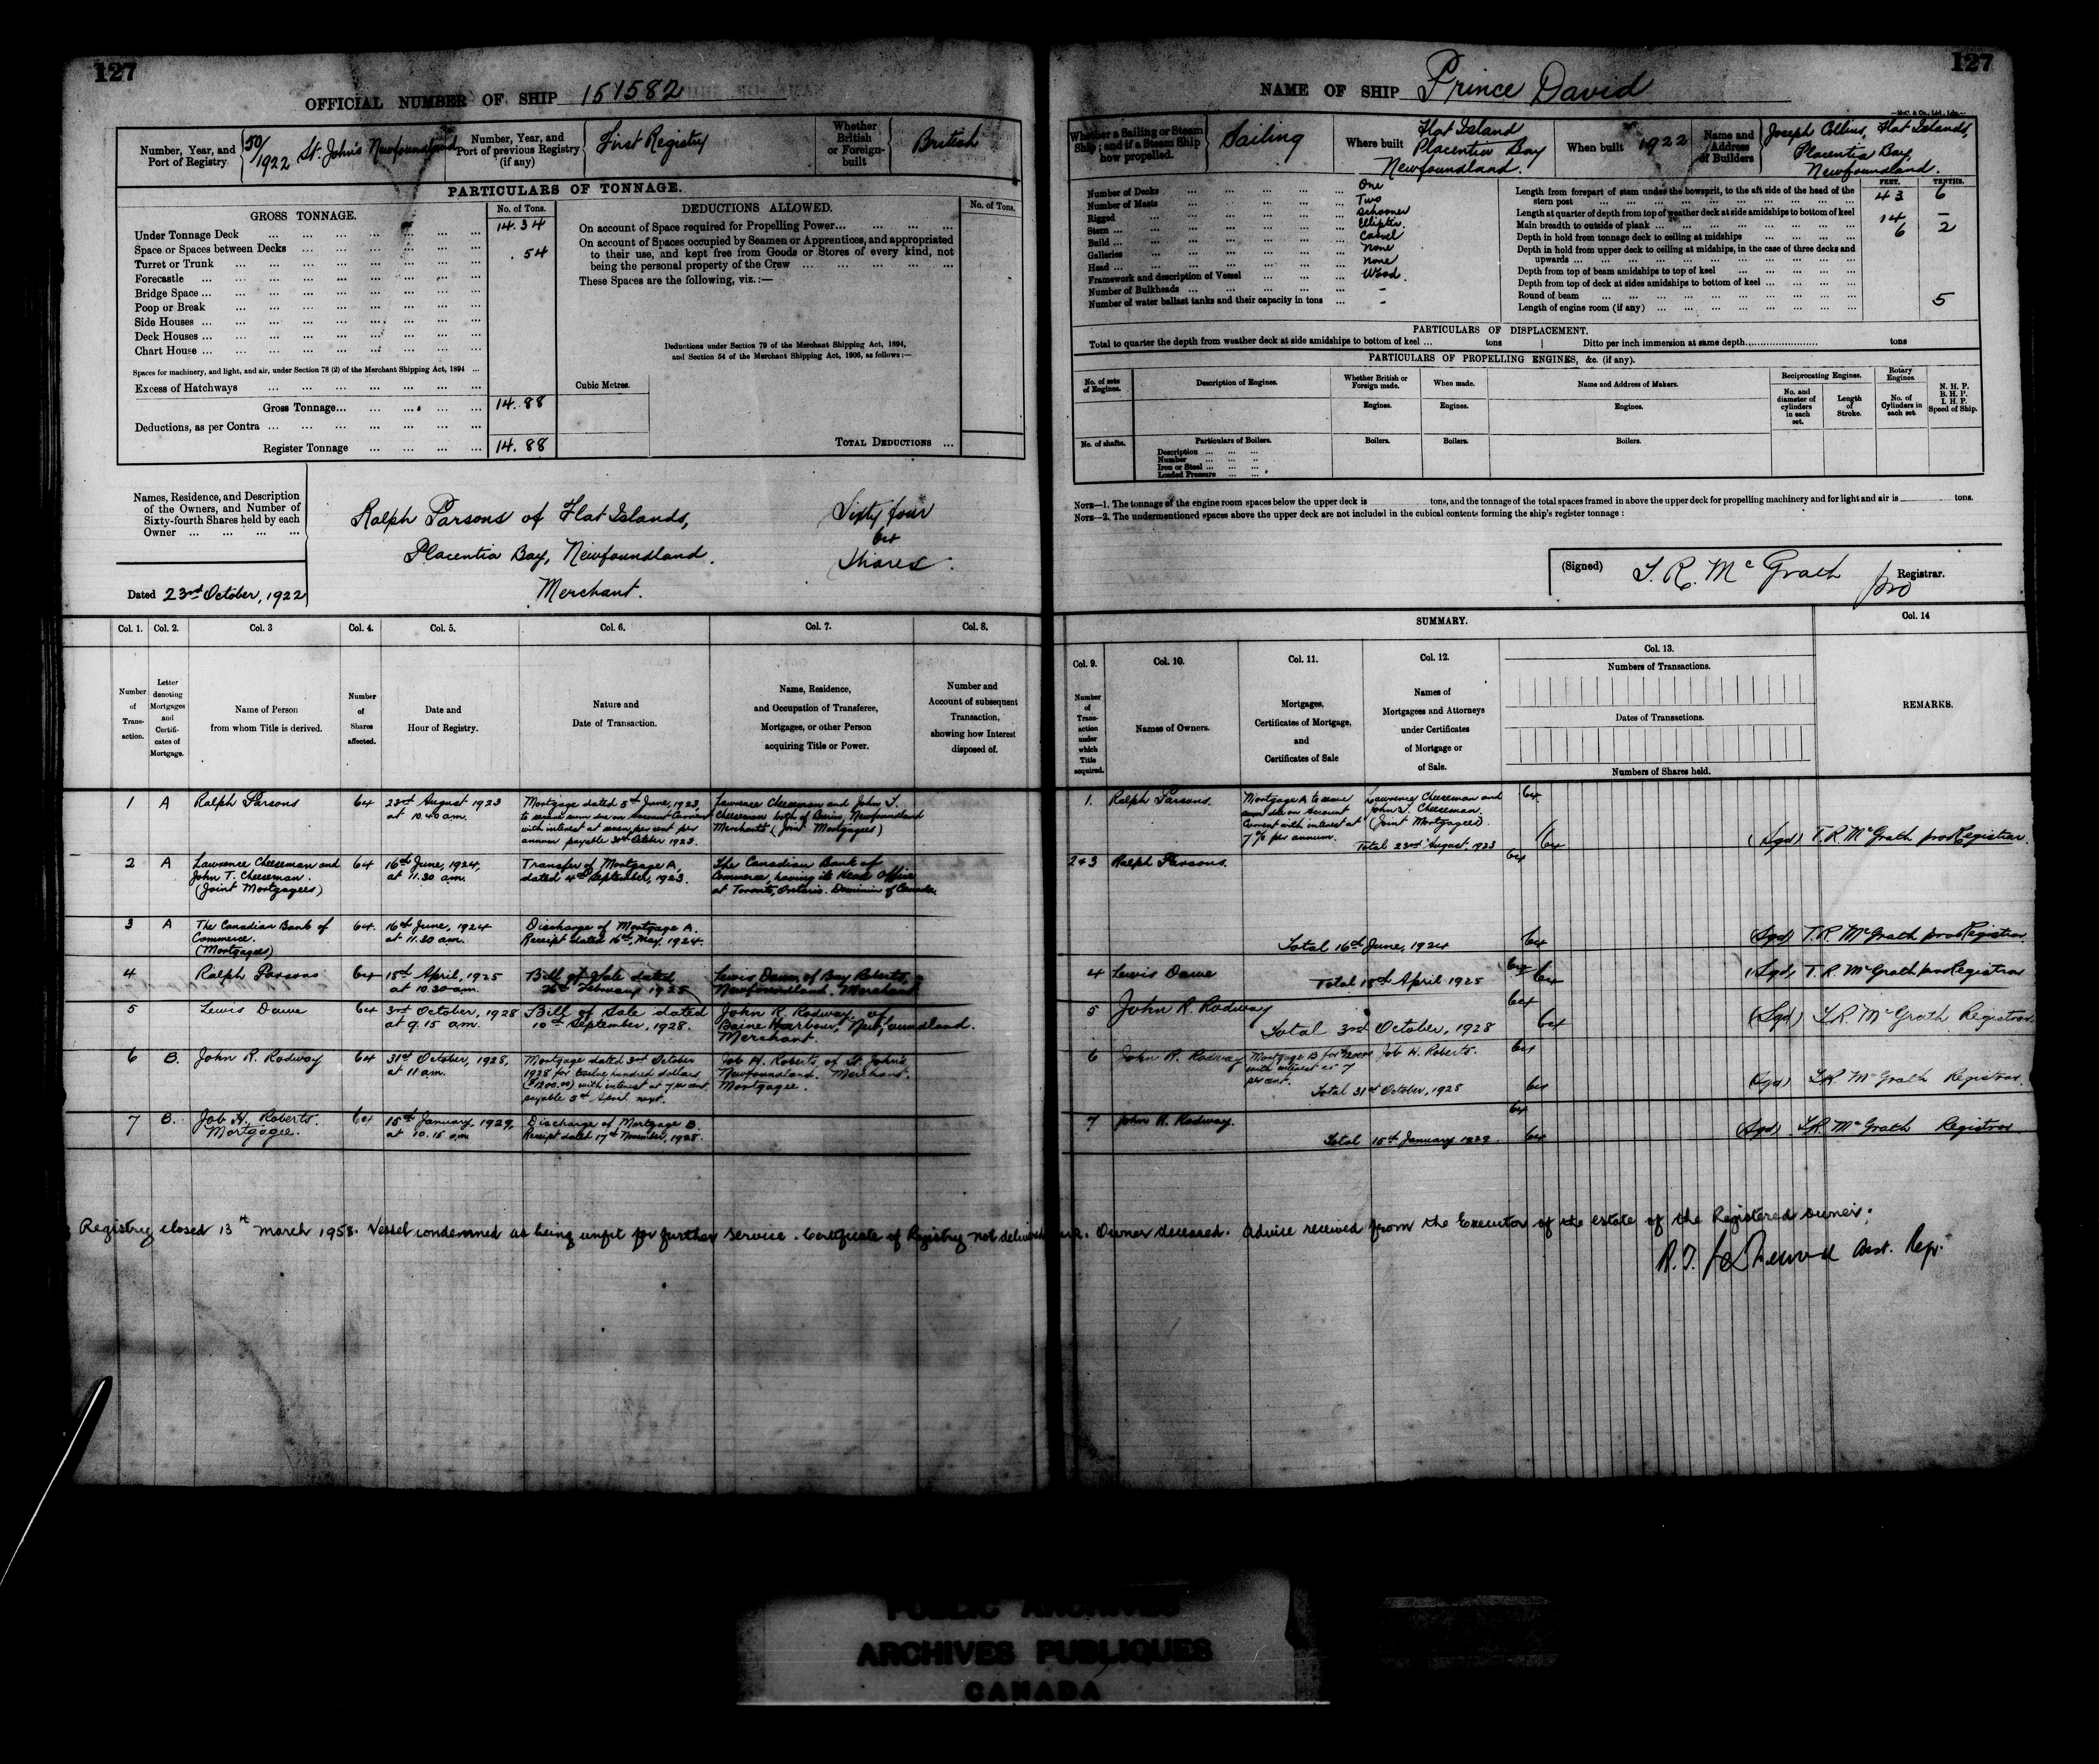 127
OFFICIAL NUMBER OF SHIP 151582
Number, Year, and Port of Registry
50/1922 St. John's Newfoundland
Number, Year, and Port of previous Registry (if any)
First Registry
Whether British or Foreign-built
British
PARTICULARS OF TONNAGE.
GROSS TONNAGE.
No. of Tons.
DEDUCTIONS ALLOWED.
No. of Tons.
Under Tonnage Deck ... 14.34
Space or Spaces between Decks ...
Turret or Trunk ... .54
Forecastle ...
Bridge Space ...
Poop or Break ...
Side Houses ...
Deck Houses ...
Chart House ...
Spaces for machinery, and light, and air, under Section 78 (2) of the Merchant Shipping Act, 1894 ...
Excess of Hatchways ...
Gross Tonnage... 14.88
Deductions, as per Contra ...
Register Tonnage ... 14.88
On account of Space required for Propelling Power...
On account of Spaces occupied by Seamen or Apprentices, and appropriated
to their use, and kept free from Goods or Stores of every kind, not
being the personal property of the Crew ...
These Spaces are the following, viz.:—
Deductions under Section 79 of the Merchant Shipping Act, 1894,
and Section 54 of the Merchant Shipping Act, 1906, as follows:—
Cubic Metres.
TOTAL DEDUCTIONS ...
Names, Residence, and Description
of the Owners, and Number of
Sixty-fourth Shares held by each
Owner ...
Ralph Parsons of Flat Islands,
Placentia Bay, Newfoundland.
Merchant.
Sixty four
64
Shares.
Dated 23rd October, 1922
Col. 1. Col. 2. Col. 3 Col. 4. Col. 5. Col. 6. Col. 7. Col. 8.
Number of Trans-action.
Letter denoting Mortgages and Certifi-cates of Mortgage.
Name of Person from whom Title is derived.
Number of Shares affected.
Date and Hour of Registry.
Nature and Date of Transaction.
Name, Residence, and Occupation of Transferee, Mortgage, or other Person acquiring Title or Power.
Number and Account of subsequent Transaction, showing how Interest disposed of.
1 A Ralph Parsons 64 23rd August 1923 at 10.40 am.
Mortgage dated 5th June, 1923,
to secure sum due on Account Current
with interest at seven per cent per
annum payable 30th October 1923.
Lawrence Cheeseman and John T.
Cheeseman both of Burin, Newfoundland
Merchants (Joint Mortgagees)
2 A Lawrence Cheeseman and
John T. Cheeseman.
(Joint Mortgagees)
64 16th June, 1924, at 11.30 am.
Transfer of Mortgage A,
dated 4th September, 1923.
The Canadian Bank of
Commerce, having its Head Office
at Toronto, Ontario. Dominion of Canada.
3 A The Canadian Bank of
Commerce.
(Mortgagees)
64. 16th June, 1924 at 11.30 am.
Discharge of Mortgage A.
Receipt dated 16th May, 1924.
4 Ralph Parsons 64 18th April, 1925 at 10.30 am.
Bill of Sale dated
February 1925
Lewis Dawe of Bay Roberts,
Newfoundland. Merchant
5 Lewis Dawe 64 3rd October, 1928 at 9.15 am.
Bill of Sale dated
10th September, 1928.
John R. Rodway. of
Baine Harbour, Newfoundland.
Merchant.
6 B. John R. Rodway 64 31st October, 1928, at 11 am.
Mortgage dated 3rd October
1928 for twelve hundred dollars
($1200.00) with interest at 7 per cent
payable 5th April next.
Job H. Roberts, of St. John's
Newfoundland. Merchant.
Mortgagee.
7 B. Job H. Roberts.
Mortgagee.
64 15th January, 1929, at 10.15 am
Discharge of Mortgage B.
Receipt dated 17th November, 1928.
127
NAME OF SHIP Prince David
Whether a Sailing or Steam Ship; and if a Steam Ship how propelled.
Sailing
Where built
Flat Island
Placentia Bay
Newfoundland.
When built 1922
Name and Address of Builders
Joseph Collins, Flat Islands,
Placentia Bay,
Newfoundland.
Number of Decks ... One
Number of Masts ... Two
Rigged ... Schooner
Stern ... Elliptic
Build ... Carvel
Galleries ... None
Head ... None
Framework and description of Vessel ... Wood.
Number of Bulkheads ... -
Number of water ballast tanks and their capacity in tons ... -
FEET. TENTHS.
Length from forepart of stem under the bowsprit, to the aft side of the head of the
stern post ... 43 6
Length at quarter of depth from top of weather deck at side amidships to bottom of keel
Main breadth to outside of plank ... 14 –
Depth in hold from tonnage deck to ceiling at midships ... 6 2
Depth in hold from upper deck to ceiling at midships, in the case of three decks and
upwards ...
Depth from top of beam amidships to top of keel ...
Depth from top of deck at sides amidships to bottom of keel ...
Round of beam ... 5
Length of engine room (if any) ...
PARTICULARS OF DISPLACEMENT.
Total to quarter the depth from weather deck at side amidships to bottom of keel ... tons
Ditto per inch immersion at same depth........ tons
PARTICULARS OF PROPELLING ENGINES, &c. (if any).
No. of sets of Engines.
Description of Engines.
Whether British or Foreign made.
When made.
Name and Address of Makers.
Reciprocating Engines.
Rotary Engines.
No. and diameter of cylinders in each set.
Length of Stroke.
No. of Cylinders in each set.
N. H. P.
B. H. P.
I. H. P.
Speed of Ship.
Engines. Engines. Engines.
No. of shafts.
Particulars of Boilers.
Boilers. Boilers. Boilers.
Description ...
Number ...
Iron or Steel ...
Loaded Pressure ...
NOTE—1. The tonnage of the engine room spaces below the upper deck is tons, and the tonnage of the total spaces framed in above the upper deck for propelling machinery and for light and air is tons.
NOTE—2. The undermentioned spaces above the upper deck are not included in the cubical contents forming the ship's register tonnage:
(Signed) T. R. McGrath pro Registrar.
SUMMARY.
Col. 9. Col. 10. Col. 11. Col. 12. Col. 13. Col. 14
Number of Trans-action under which Title acquired.
Names of Owners.
Mortgages, Certificates of Mortgage, and Certificates of Sale
Names of Mortgagees and Attorneys under Certificates of Mortgage or of Sale.
Numbers of Transactions.
Dates of Transactions.
Numbers of Shares held.
REMARKS.
1. Ralph Parsons.
Mortgage A to secure
sum due on Account
Current with interest at
7% per annum.
Lawrence Cheeseman and
John T. Cheeseman.
(Joint Mortgagees).
64
Total 23rd August, 1923 64
(Sgd) T. R. McGrath pro Registrar.
2&3 Ralph Parsons. 64
Total 16th June, 1924 64
(Sgd) T. R. McGrath pro Registrar
4 Lewis Dawe 64
Total 18th April 1925 64
(Sgd) T. R. McGrath pro Registrar
5 John R. Rodway 64
Total 3rd October, 1928 64
(Sgd) T. R. McGrath Registrar
6 John R. Rodway
Mortgage B for $1200.00
with interest at 7
per cent.
Job H. Roberts. 64
Total 31st October, 1928 64
(Sgd) T. R. McGrath Registrar.
7 John R. Rodway. 64
Total 15th January 1929. 64
(Sgd) T. R. McGrath Registrar.
Registry closed 13th March 1958. Vessel condemned as being unfit for further service. Certificate of Registry not delivered up. Owner deceased. Advice received from the Executor of the estate of the Registered owner.
Asst. Regr.
PUBLIC ARCHIVES
ARCHIVES PUBLIQUES
CANADA